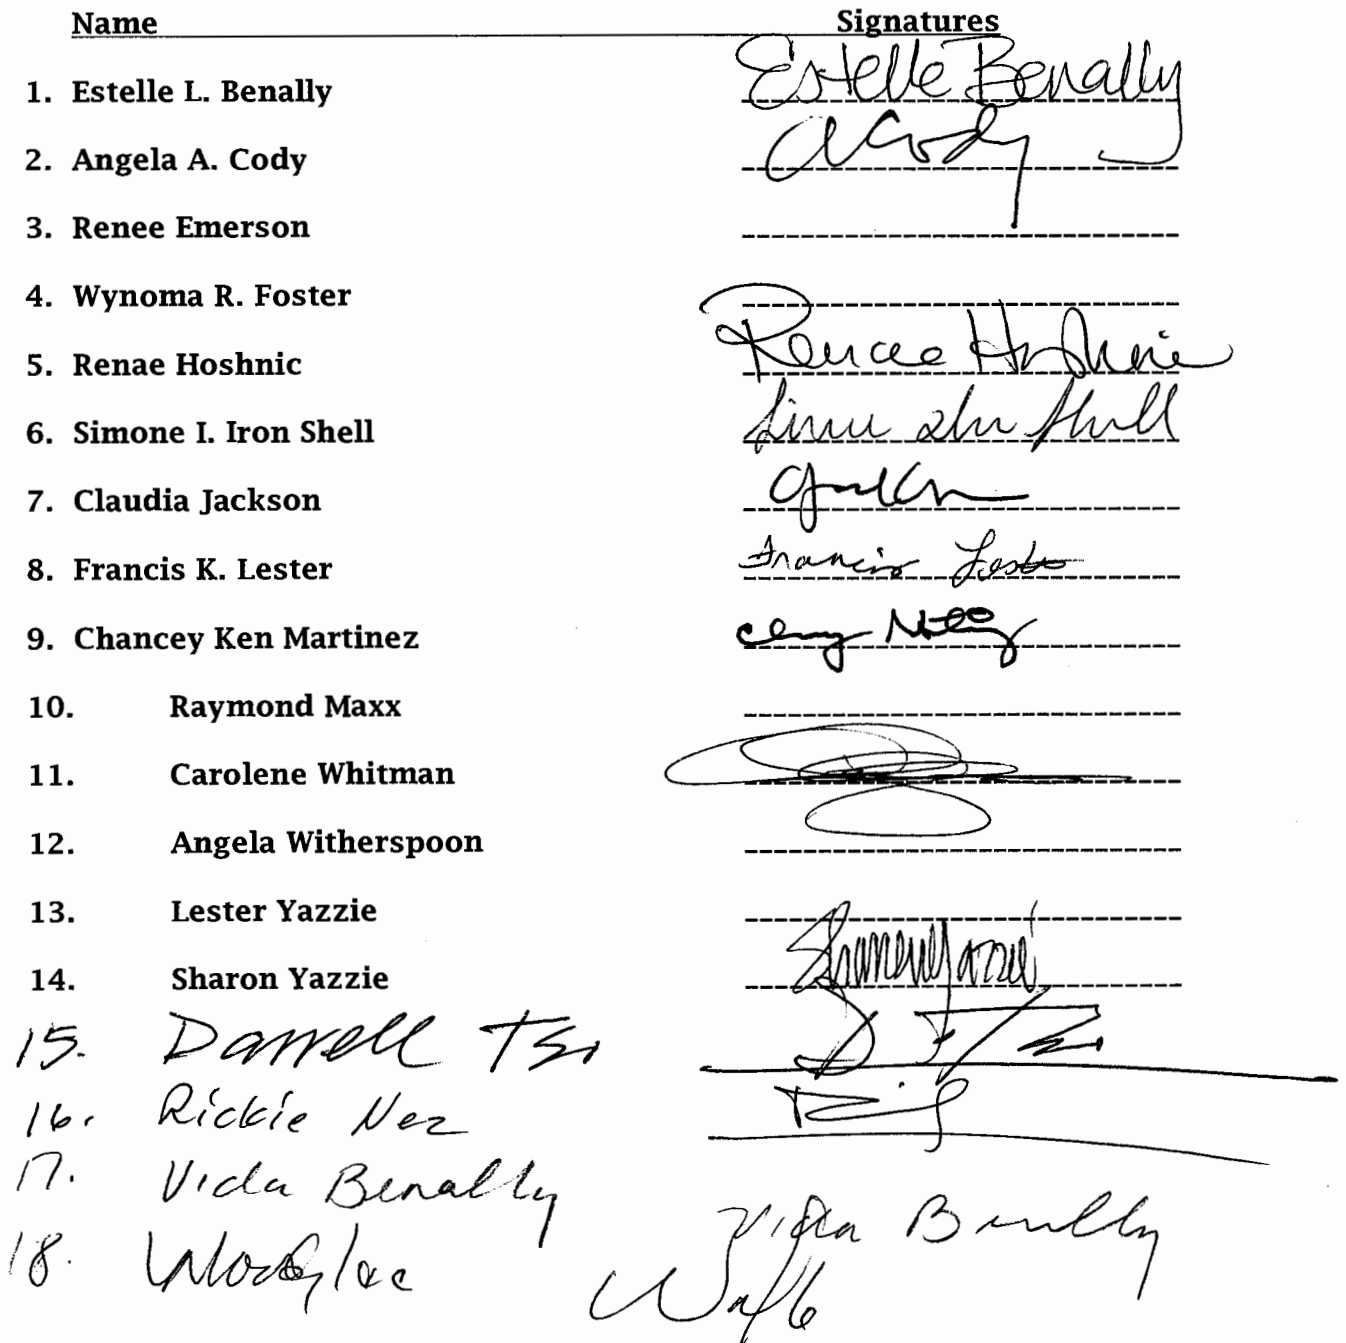 Name Signatures
1. Estelle L. Benally Estelle Benally
2. Angela A. Cody ACody
3. Renee Emerson
4. Wynoma R. Foster
5. Renae Hoshnic
6. Simone I. Iron Shell
7. Claudia Jackson
8. Francis K. Lester Francis Lester
9. Chancey Ken Martinez
10. Raymond Maxx
11. Carolene Whitman
12. Angela Witherspoon
13. Lester Yazzie
14. Sharon Yazzie
15. Darrell Tso
16. Rickie Nez
17. Vida Benally Vida Benally
18.